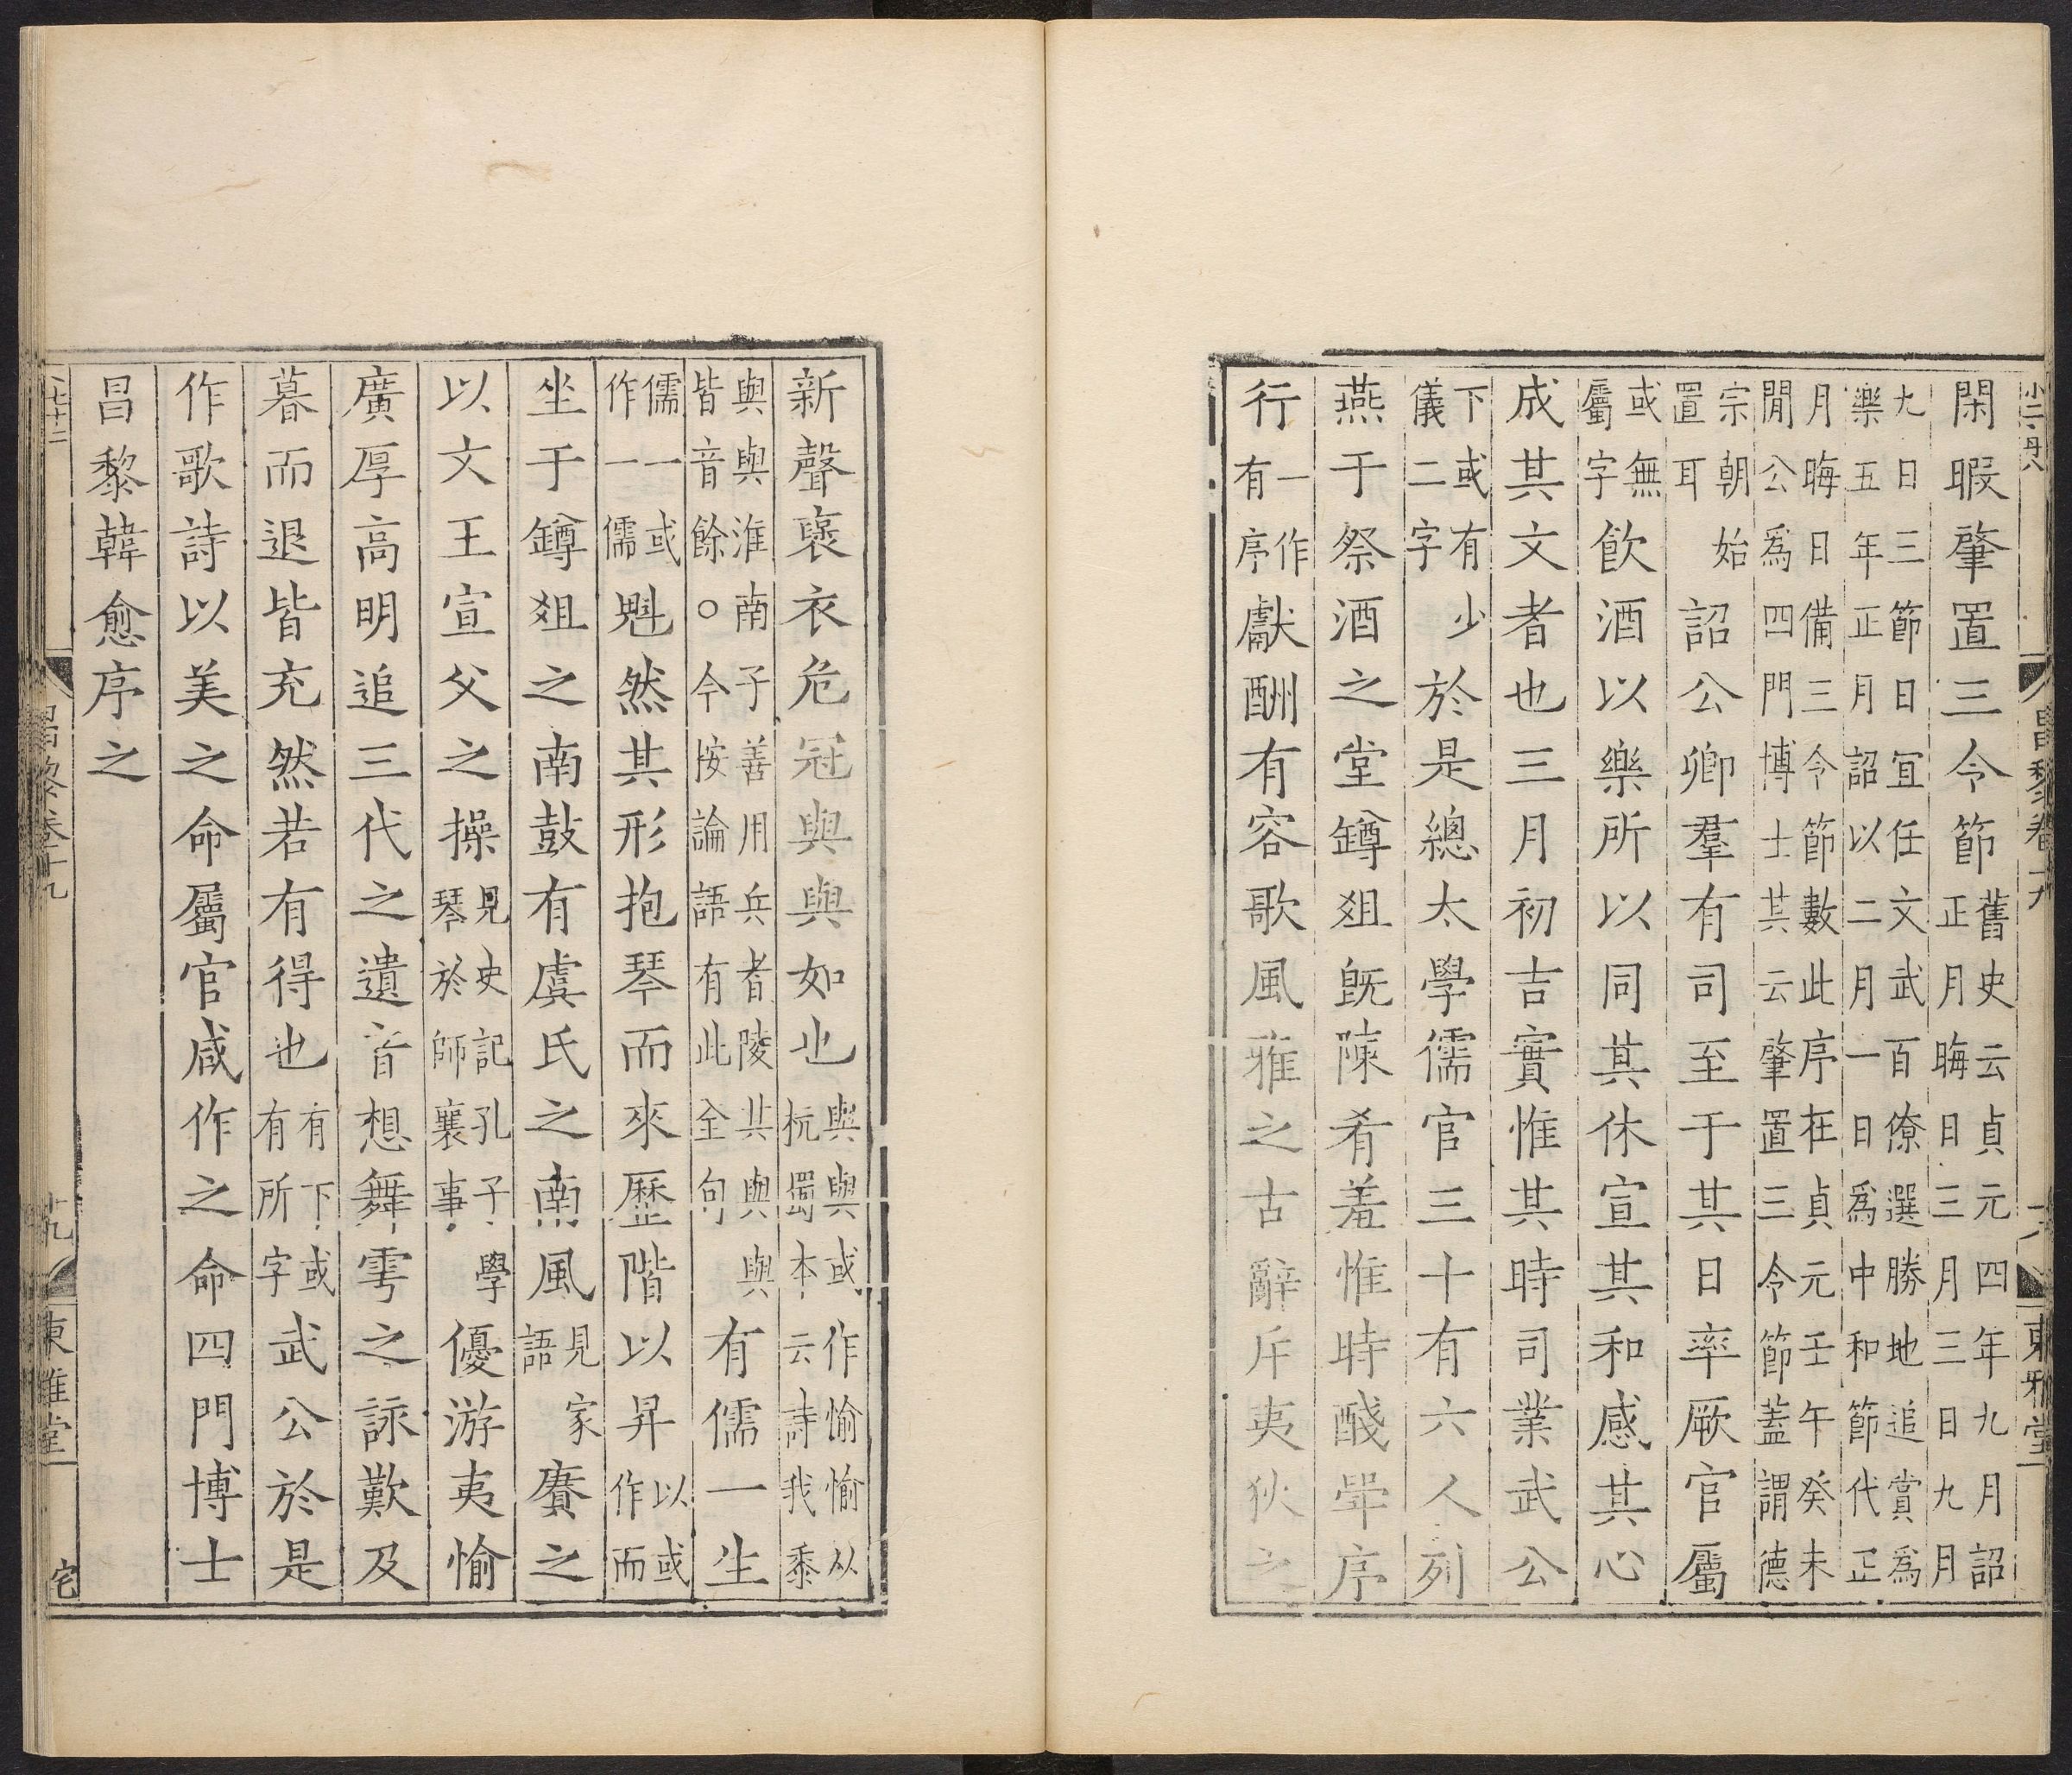 昌黎卷十九
東雅堂
閑暇肇置三令節舊史云貞元四年九月詔
正月晦日三月三日九月
九日三節日宜任文武百僚選勝地追賞爲
樂五年正月詔以二月一日爲中和節代正
月晦日備三令節數此序在貞元壬午癸未
閒公爲四門博士其云肇置三令節蓋謂德
宗朝始
置耳詔公卿羣有司至于其日率厥官屬
或無
屬字飲酒以樂所以同其休宣其和感其心
成其文者也三月初吉實惟其時司業武公
下或有少
儀二字於是總太學儒官三十有六人列
燕于祭酒之堂罇俎旣陳肴羞惟時醆斝序
行一作
有序獻酬有容歌風雅之古辭斥夷狄之
新聲褒衣危冠與與如也與與或作愉愉从
杭蜀本云詩我黍
與與淮南子善用兵者陵其與與
皆音餘○今按論語有此全句有儒一生
儒一或
作一儒魁然其形抱琴而來歷階以昇以或
作而
坐于罇俎之南鼓有虞氏之南風見家
語賡之
以文王宣父之操見史記孔子學
琴於師襄事優游夷愉
廣厚高明追三代之遺音想舞雩之詠歎及
暮而退皆充然若有得也有下或
有所字武公於是
作歌詩以美之命屬官咸作之命四門博士
昌黎韓愈序之
昌黎卷十九
十九
東雅堂
宅